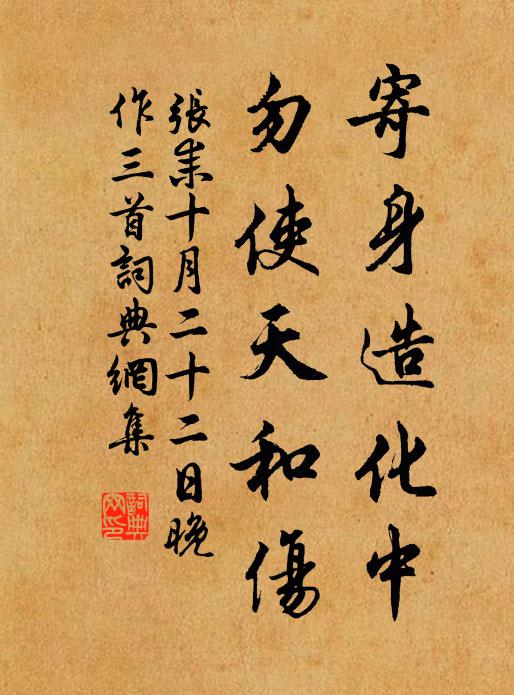 寄身造化中
勿使天和傷
張耒十月二十二日晚
作三首詞典網集
詞典網印